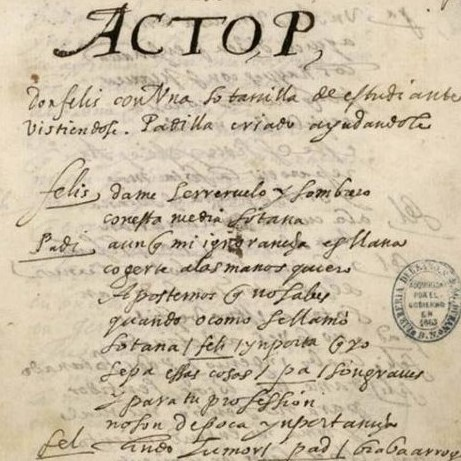 ACTO, P,
Don felis con Una sotanilla de estudiante
vistiendose. Padilla criado ayudandole
felis dame ferreruelo y sombrero
con esta media sotana
Padi aunq mi ignorancia es llana
cogerte a las manos quiero
Apostemos q no sabes
quando o como se llamó
sotana / feli / ynporta q yo
sepa essas cosas / pa / son graues
y para tu professión
no son de poca ynportancia
fel lindo umor / pad /
ADQUIRIDO
POR EL
GOBIERNO
EN
1863
B. N.